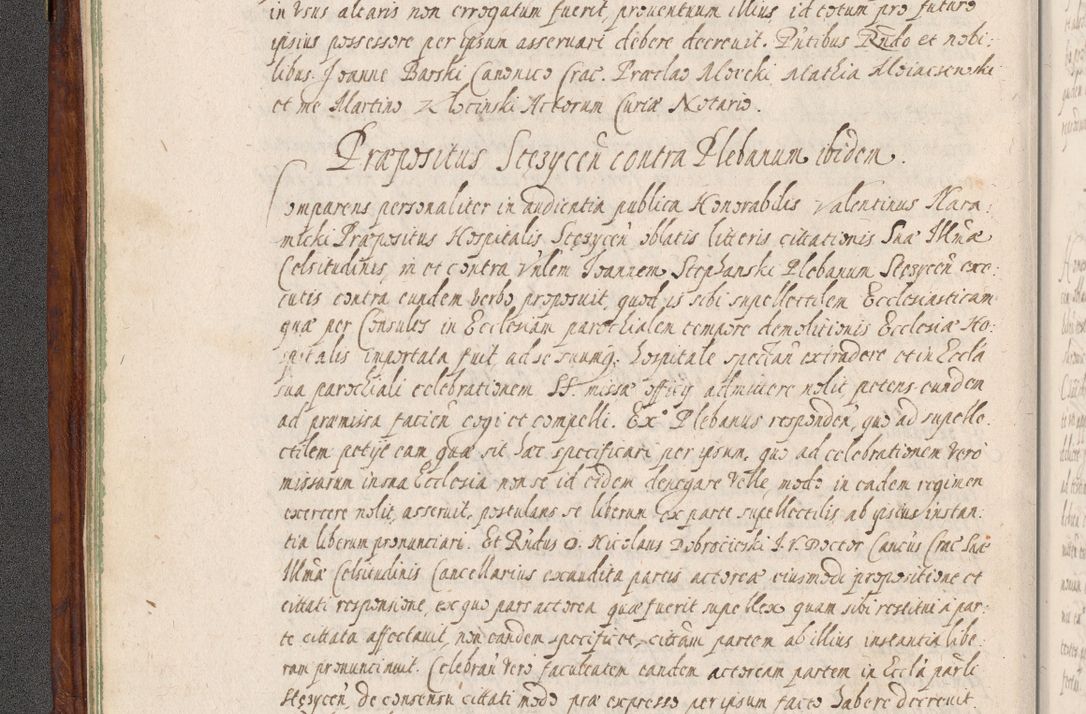 in vsus altaris non errogatum fuerit, prouentuum illius id totum pro futuro
ipsius possessore per ipsum asseruari debere decreuit. Pñtibus Rñdo et nobi:
libus Joanne Barski Canonico Crac. Præclao Mathia
et me Martino Actorum Curiæ Notario.
Præpositus Stezyceñ contra Plebanum ibidem.
Comparens personaliter in audientia publica Honorabilis Valentinus Nara:
micki Præpositus Hospitalis Stezyceñ oblatis litteris citationis Suæ Illmæ
Celsitudinis, in et contra Vnlem Joannem Stephanski Plebanum Stezyceñ exe:
cutis contra eundem verbo proposuit, quod is sibi supellectilem Ecclesiasticam
quæ per Consules in Ecclesiam parochialem tempore demolitionis Ecclesiæ Ho:
spitalis importata fuit, ad se suumq. hospitale spectañ extradere et in Eccla
sua parochiali celebrationem SS. missæ officij admittere nolit petens eundem
ad præmissa facieñ cogi et compelli. Exº Plebanus respondeñ, quo ad supelle:
ctilem petijt eam quæ sit hæc specificari per ipsum, quo ad celebrationem vero
missarum in sua Ecclesia non se id eidem denegare velle, modo in eadem regimen
exercere nolit, asseruit, postulans se liberum ex parte supellectilis ab ipsius instan:
tia liberum pronunciari. Et Rñdus D. Nicolaus Dobrocieski J.V. Doctor Cancus Crac Suæ
Illmæ Celsitudinis Cancellarius exaudita partis actoreæ eiusmodi propositione et
citati responsione, ex quo pars actorea quæ fuerit supellex quam sibi restitui a par:
te citata affectauit, non eandem specificet, citatam partem ab illius instantia libe:
ram pronunciauit. Celebrañ vero facultatem eandem actoream partem in Eccla parli
Stezyceñ de consensu citati modo præ expresso per ipsum facto habere decreuit.